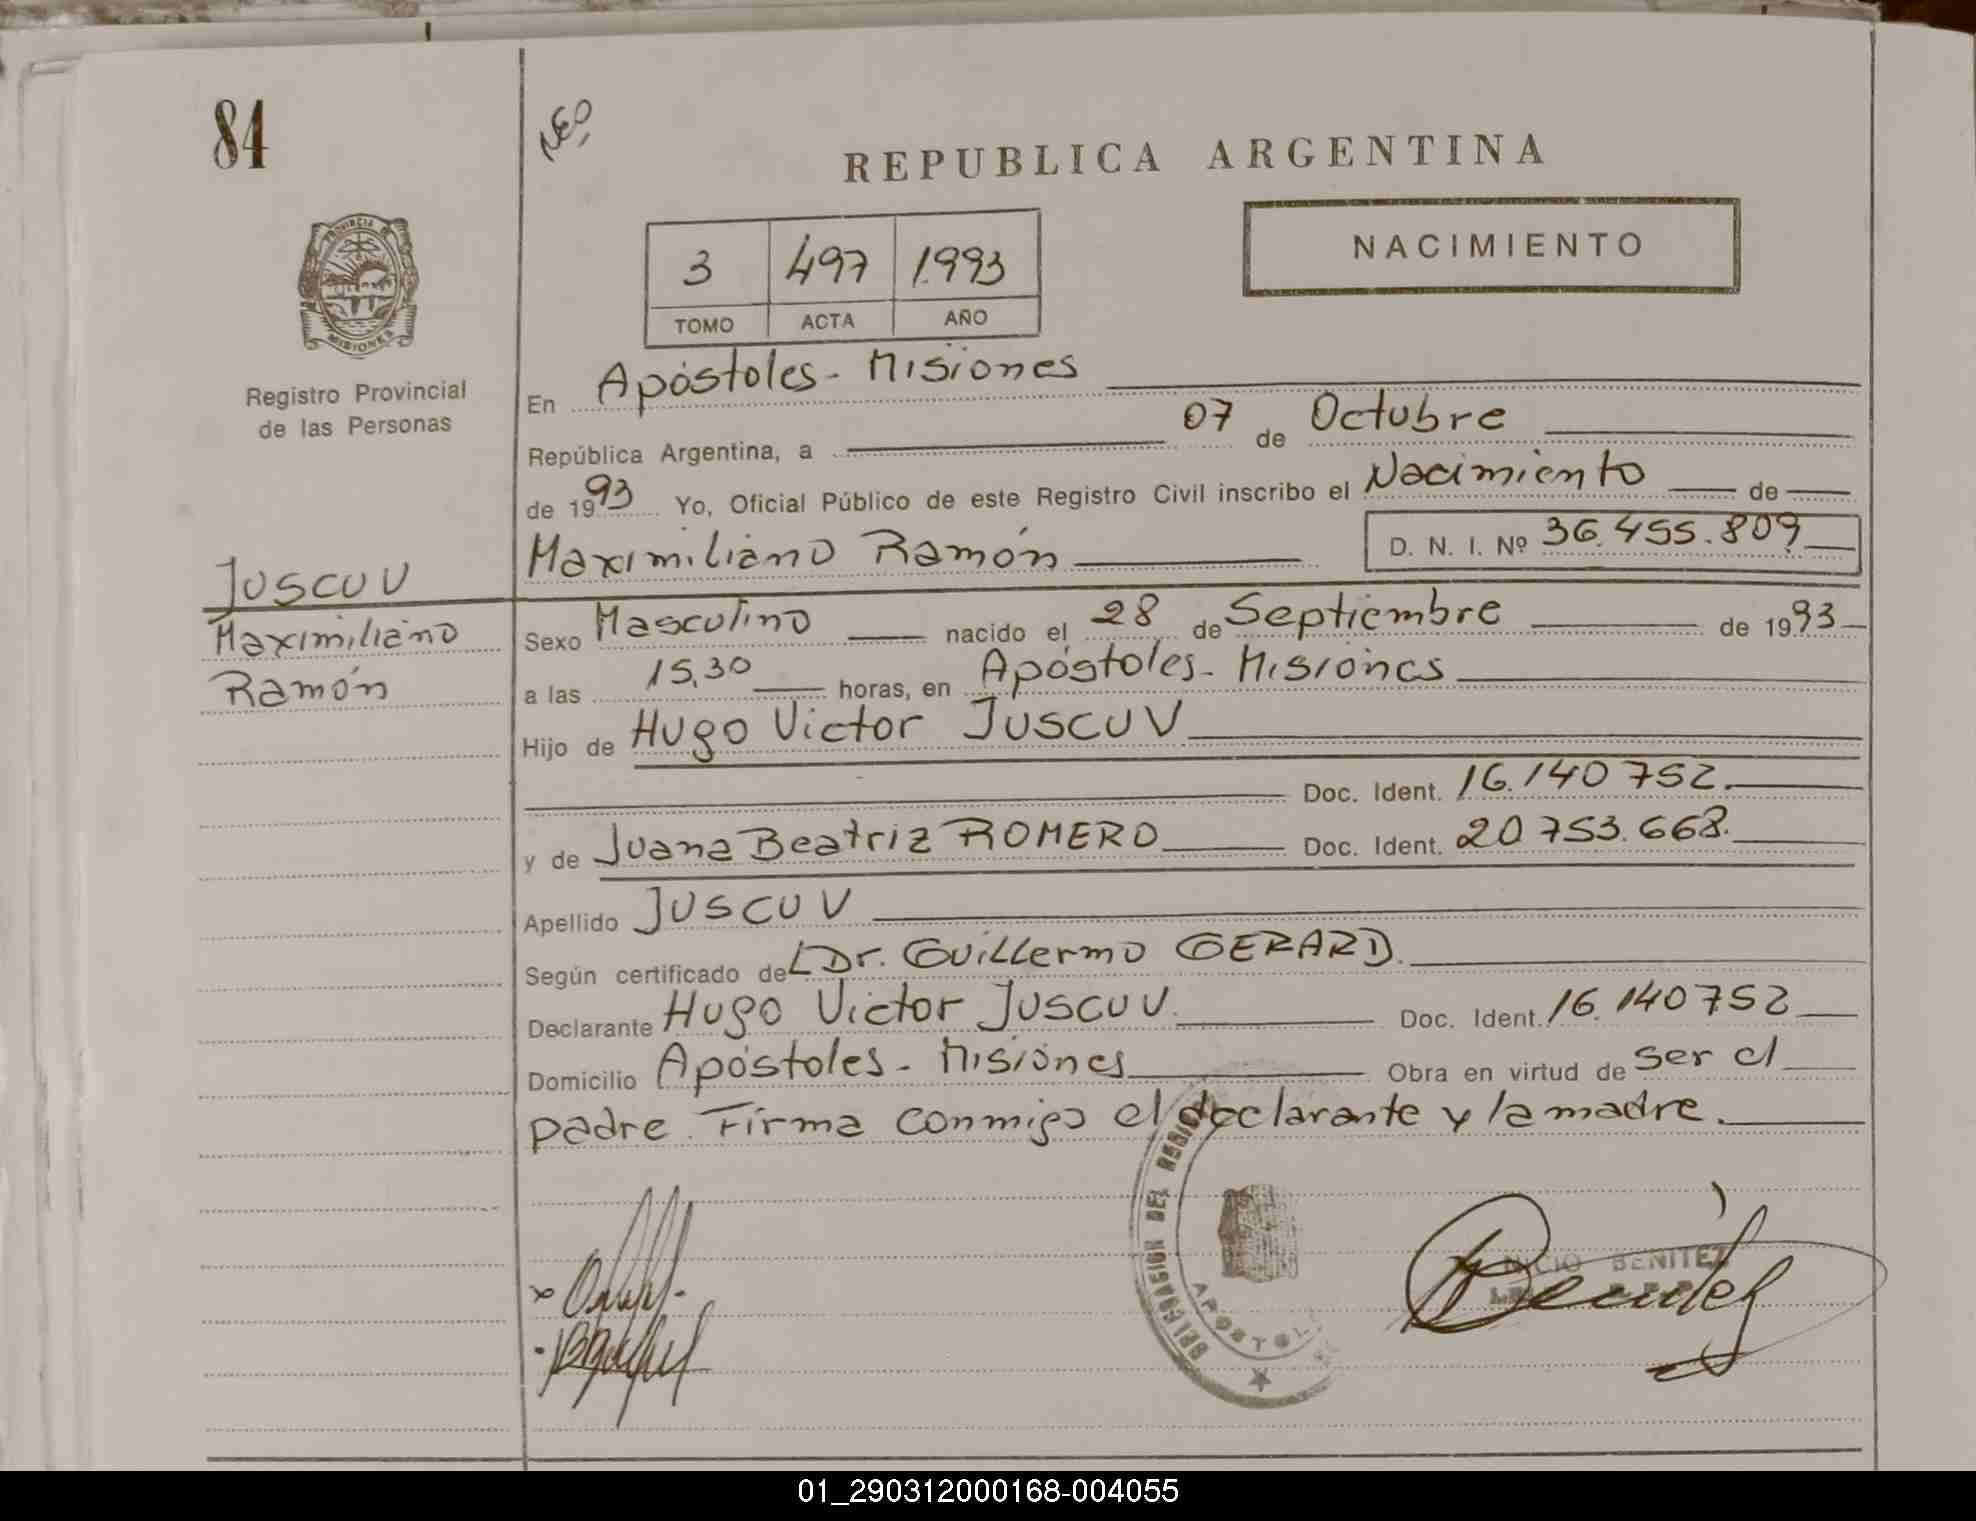 84
NEO
REPUBLICA ARGENTINA
PROVINCIA DE
MISIONES
3 497 1.993
TOMO ACTA AÑO
NACIMIENTO
Registro Provincial
de las Personas
En Apóstoles - Misiones
República Argentina, a 07 de Octubre
de 1993 Yo, Oficial Público de este Registro Civil inscribo el Nacimiento de
Maximiliano Ramón D. N. I. Nº 36.455.809
JUSCUV
Maximiliano
Ramón
Sexo Masculino nacido el 28 de Septiembre de 1993
a las 15,30 horas, en Apóstoles - Misiones
Hijo de Hugo Victor JUSCUV
Doc. Ident. 16.140 752.
y de Juana Beatriz ROMERO Doc. Ident. 20 753.668.
Apellido JUSCUV
Según certificado del Dr. Guillermo GERARD.
Declarante Hugo Victor JUSCUV. Doc. Ident. 16.140752
Domicilio Apóstoles - Misiones Obra en virtud de ser el
padre. Firma conmigo el declarante y la madre.
DELEGACION DEL
APOSTOL
BENITEZ
01_290312000168-004055